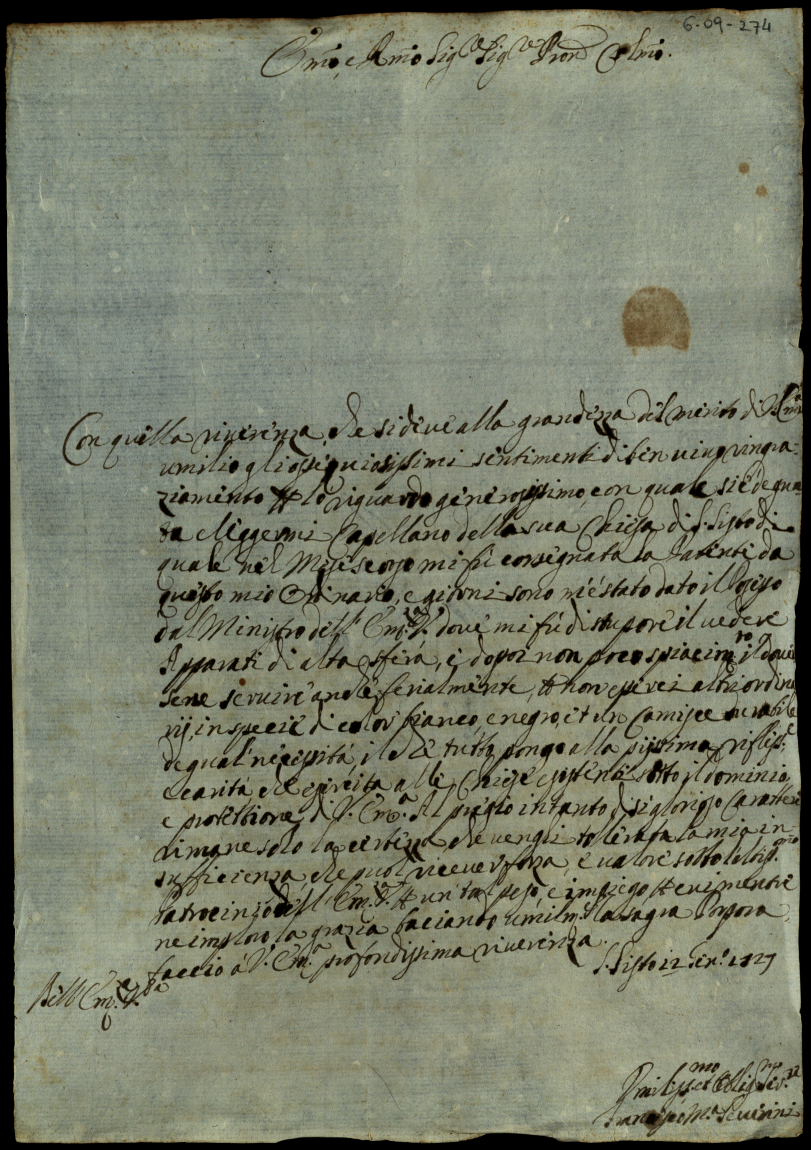 6-09-274
Em̃o, e Rmo̅ Sig.re Sig.re Pron̅ Colmo̅.
Con quella riverenza, che si deve alla grandezza del merito di V. Em.a
umilio gli ossequiosissimi sentimenti di ben vivo ringra-
ziamento per lo riguardo generosissimo, con quale si è degna
ta eleggermi Capellano della sua Chiesa di S. Sisto, di
quale nel Mese scorso mi fù consegnata la Patente da
questo mio Ordinario, e giorni sono m'è stato dato il Posesso
dal Ministro dell' Em.za V. dove mi fù di stupore il vedere
Apparati di alta sfera, e dopoi non poco spiacim.to il dover
sene servire anche ferialmente, per non esservi altri ordina
rij, in specie di color bianco, e negro, et un Camisce durabile
de qual' necessità, che tutto pongo alla pijssima rifless.e
e carità che esercita alle Chiese esistenti sotto il dominio
e protettione di V. Em.a Al pregio intanto di sì glorioso Carattere
rimane solo la certezza che venghi tolerata la mia in
sufficienza, che puol ricever forza, e valore sotto
Patrocinio dell' Em.za V. per un tal peso, e impiego per
ne imploro la grazia baciando umilm.te la sagra Porpora
faccio à V. Em.a profondissima riverenza.
S. Sisto 12 Gen.o 1727
Dell' Em.za V.ra
Umiliss.mo et Oblig.mo Ser.re
Francesco M.a Severini